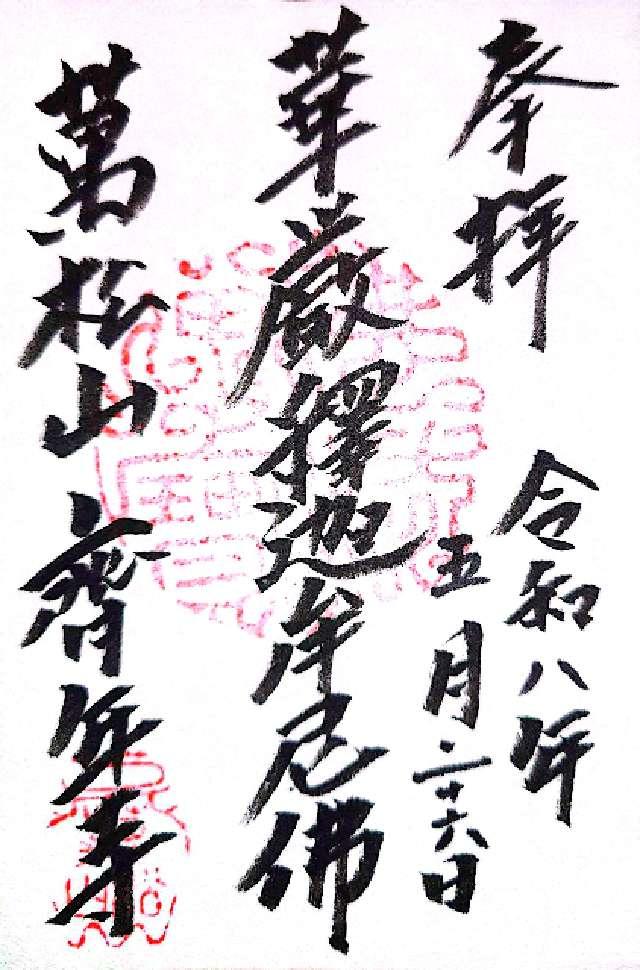 奉拜
令和八年
五月二十六日
華嚴釋迦牟尼佛
萬松山齊年寺